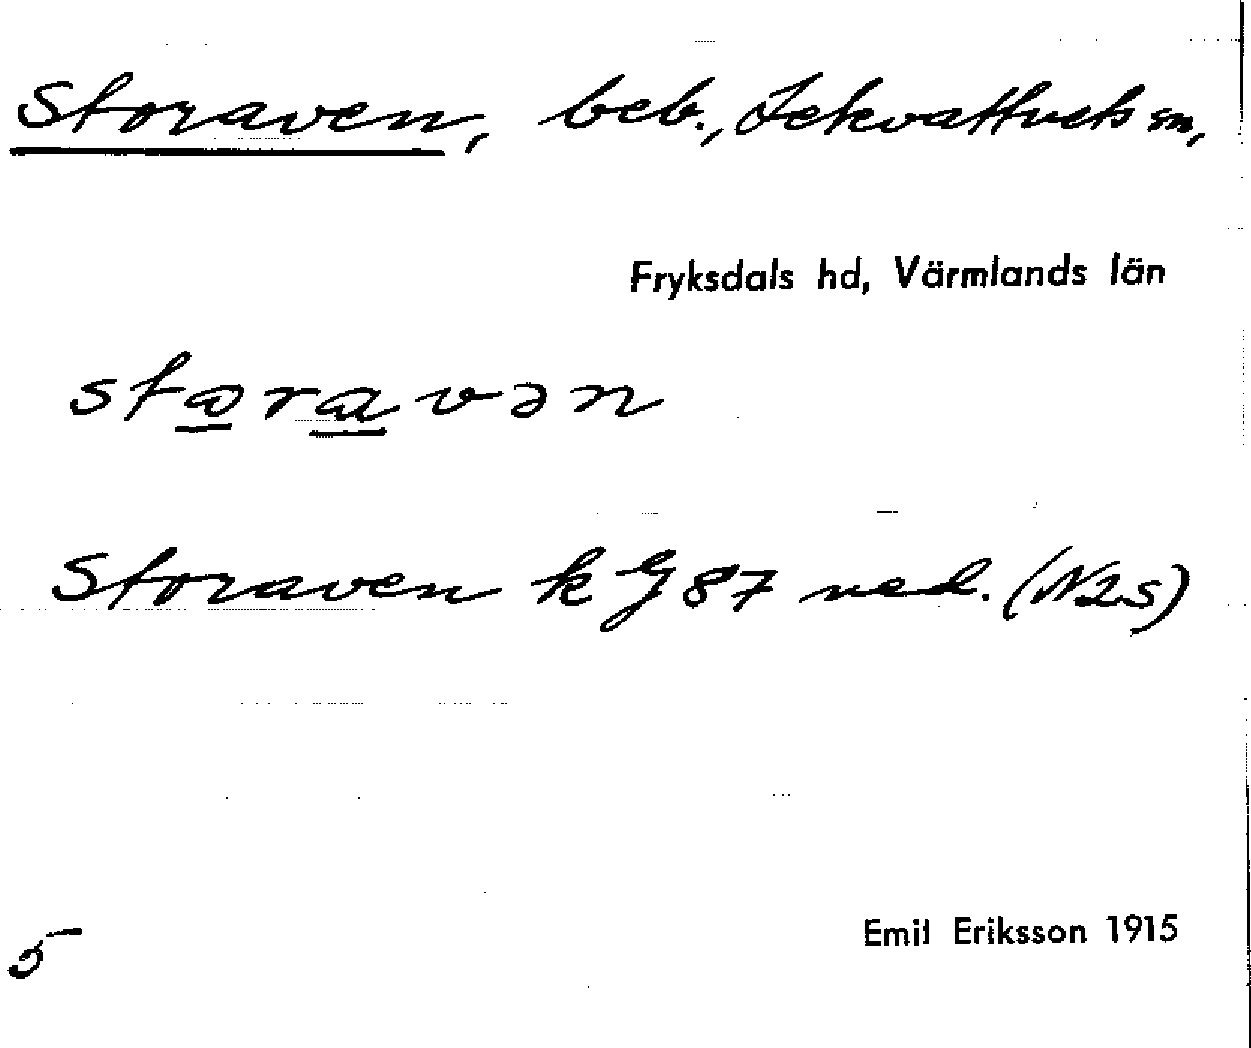 Storaven, beb., Lekvattnets sn,
Fryksdals hd, Värmlands län
storavən
Storaven k G 87 ned. (N2S)
Emil Eriksson 1915
5